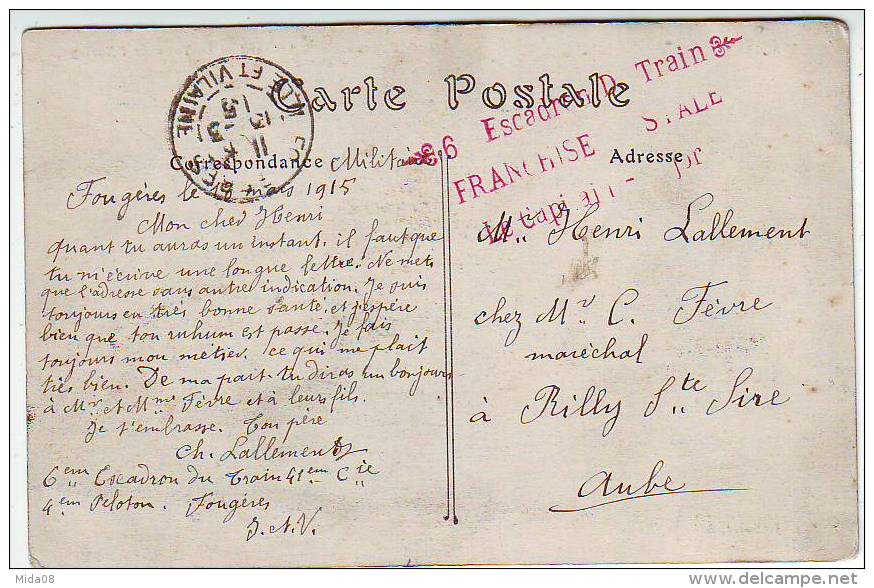 Carte Postale
Correspondance Militaire
Adresse
6 Escadron D Train
FRANCHISE STALE
ET VILAINE
Fougères le mars 1915
Mon cher Henri
quant tu auras un instant, il faut que
tu m'écrive une longue lettre. Ne mets
que l'adresse sans autre indication. Je suis
toujours en très bonne santé, et j'espère
bien que ton ruhum est passé. Je fais
toujours mon métier. ce qui me plait
très bien. De ma part tu diras un bonjours
à Mr et Mme Fèvre et à leurs fils.
Je t'embrasse. Ton père
Ch. Lallement
6em Escadron du Train 41em Cie
4em Peloton. Fougères
I. et V.
Mr Henri Lallement
chez Mr C. Fèvre
maréchal
à Rilly Ste Sire
Aube
Mida08
delcampe.net